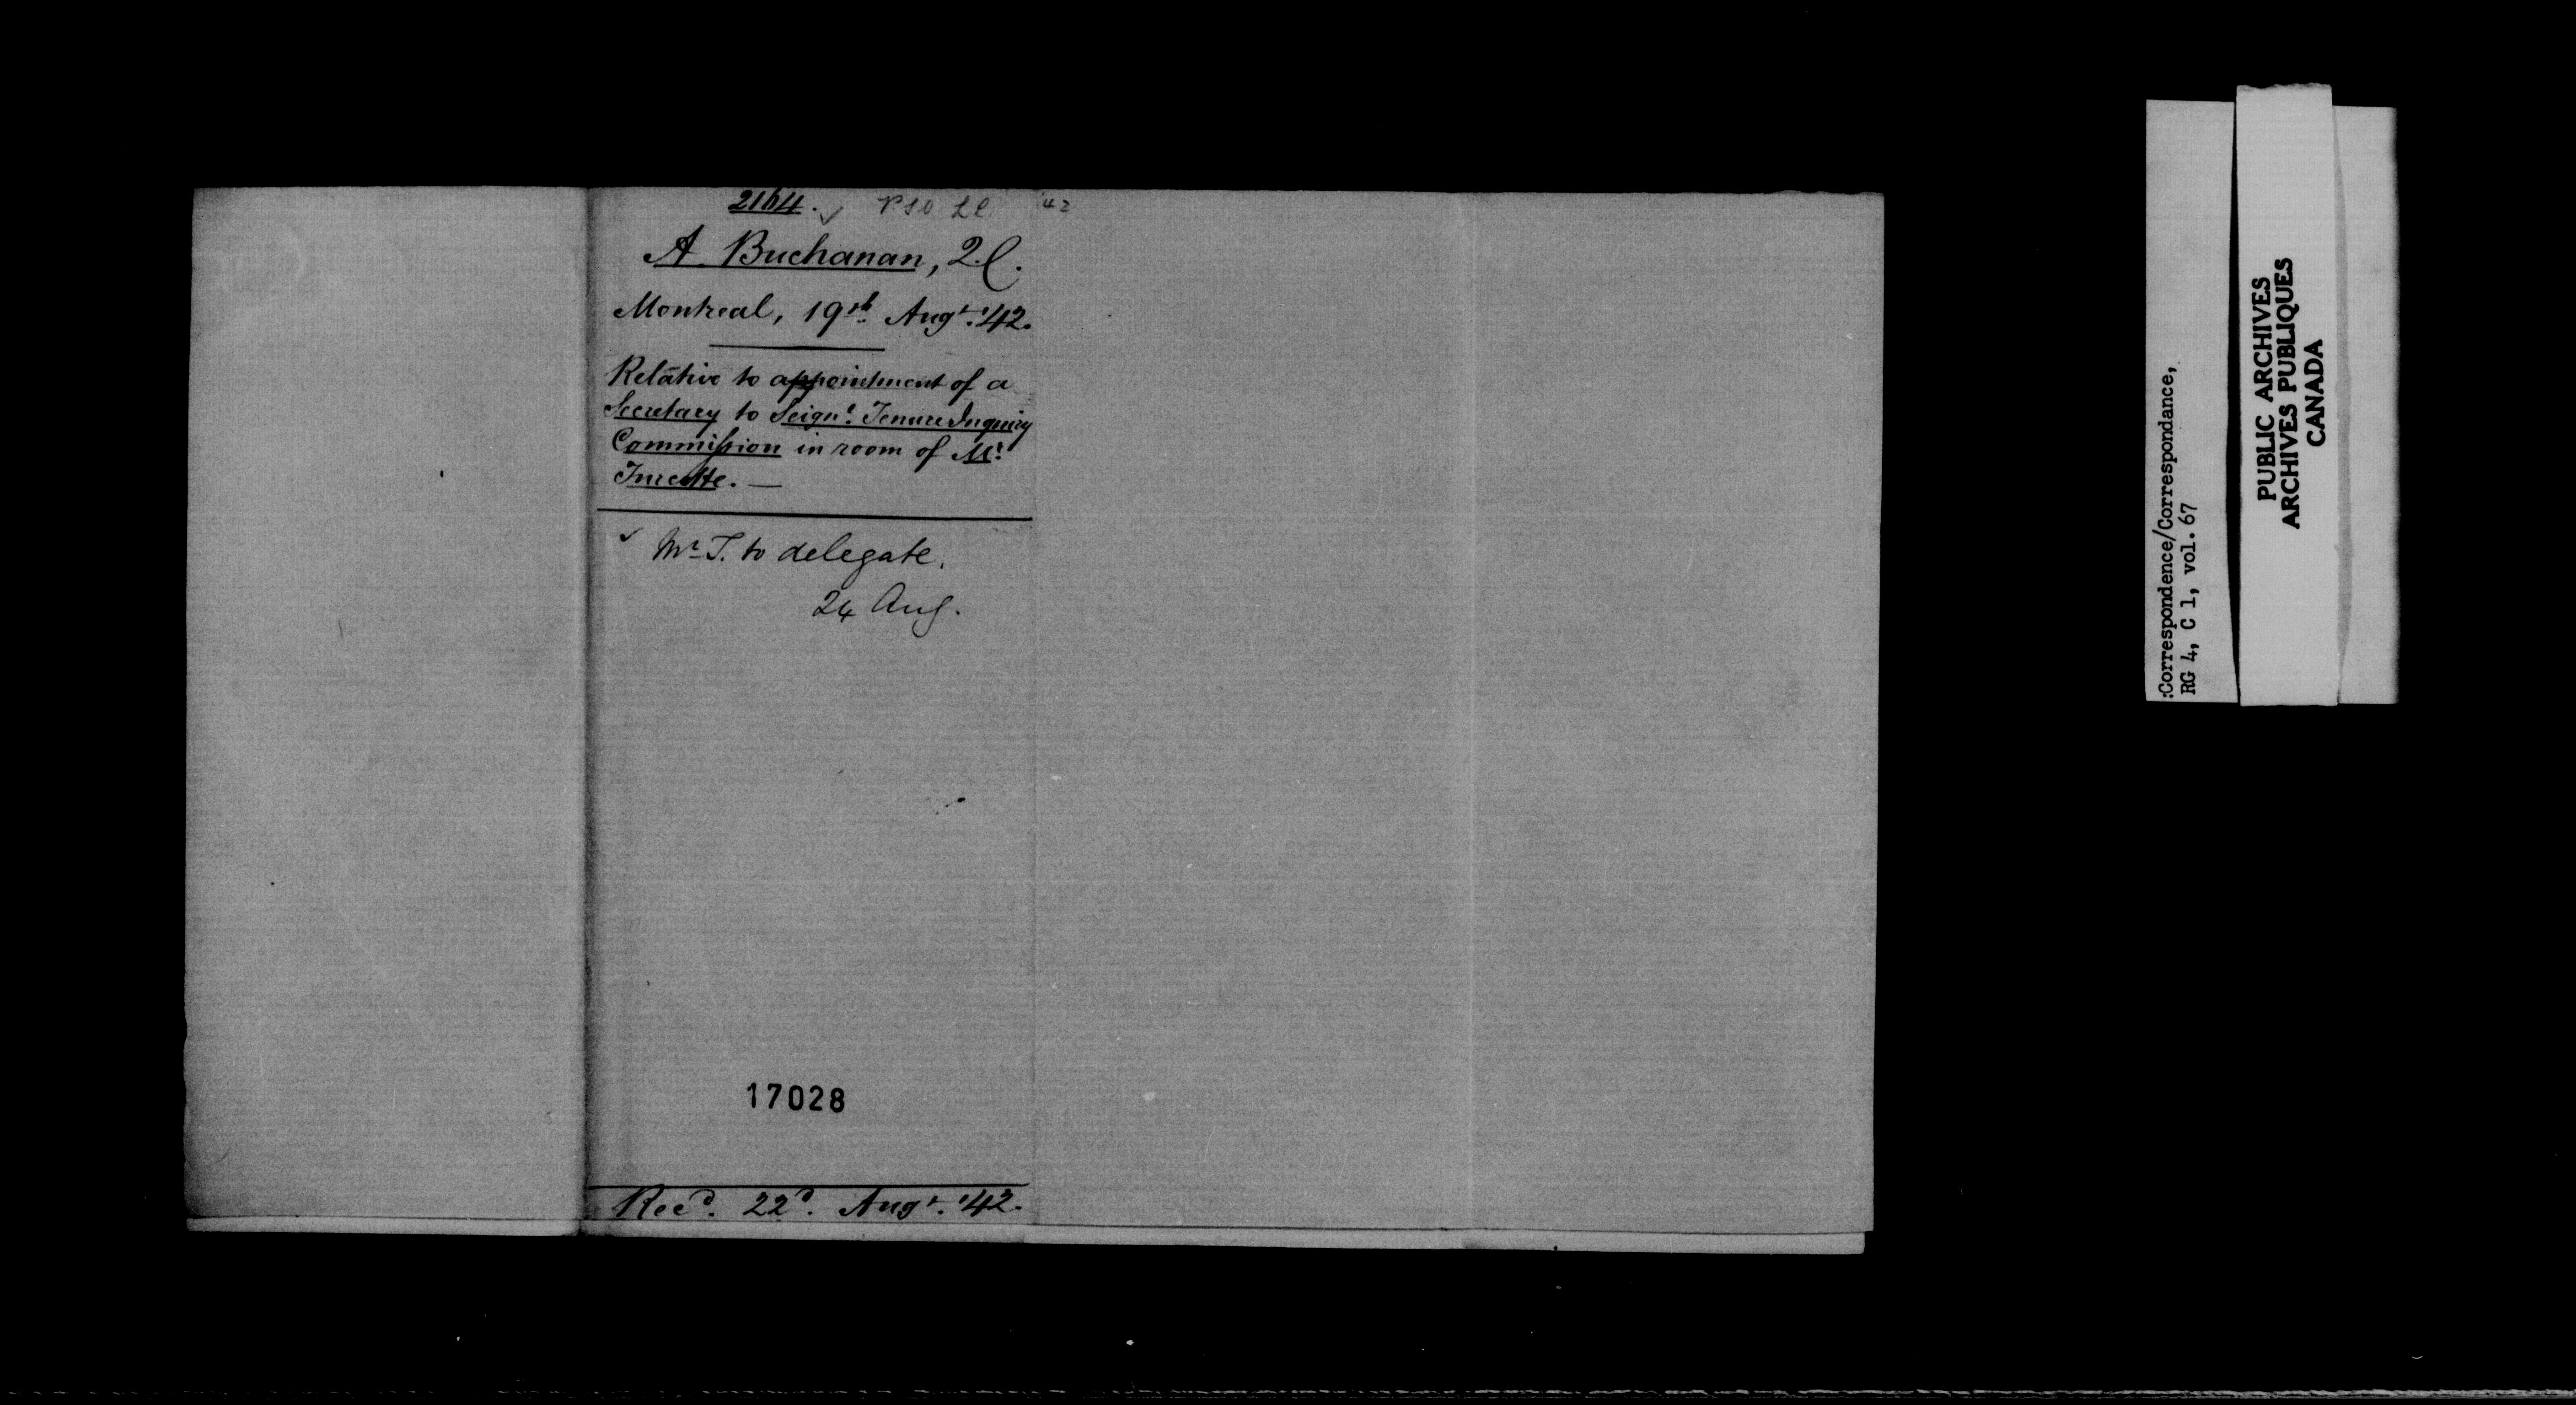 2164. ✓ PSO LC 42
A Buchanan, Q.C.
Montreal, 19th Augt. '42.
Relative to appointment of a
Secretary to Seignl. Tenure Inquiry
Commission in room of Mr.
Turcotte. —
✓ Mr. T. to delegate.
24 Aug.
17028
Recd. 22d. Augt. '42.
:Correspondence/Correspondance,
RG 4, C 1, vol. 67
PUBLIC ARCHIVES
ARCHIVES PUBLIQUES
CANADA